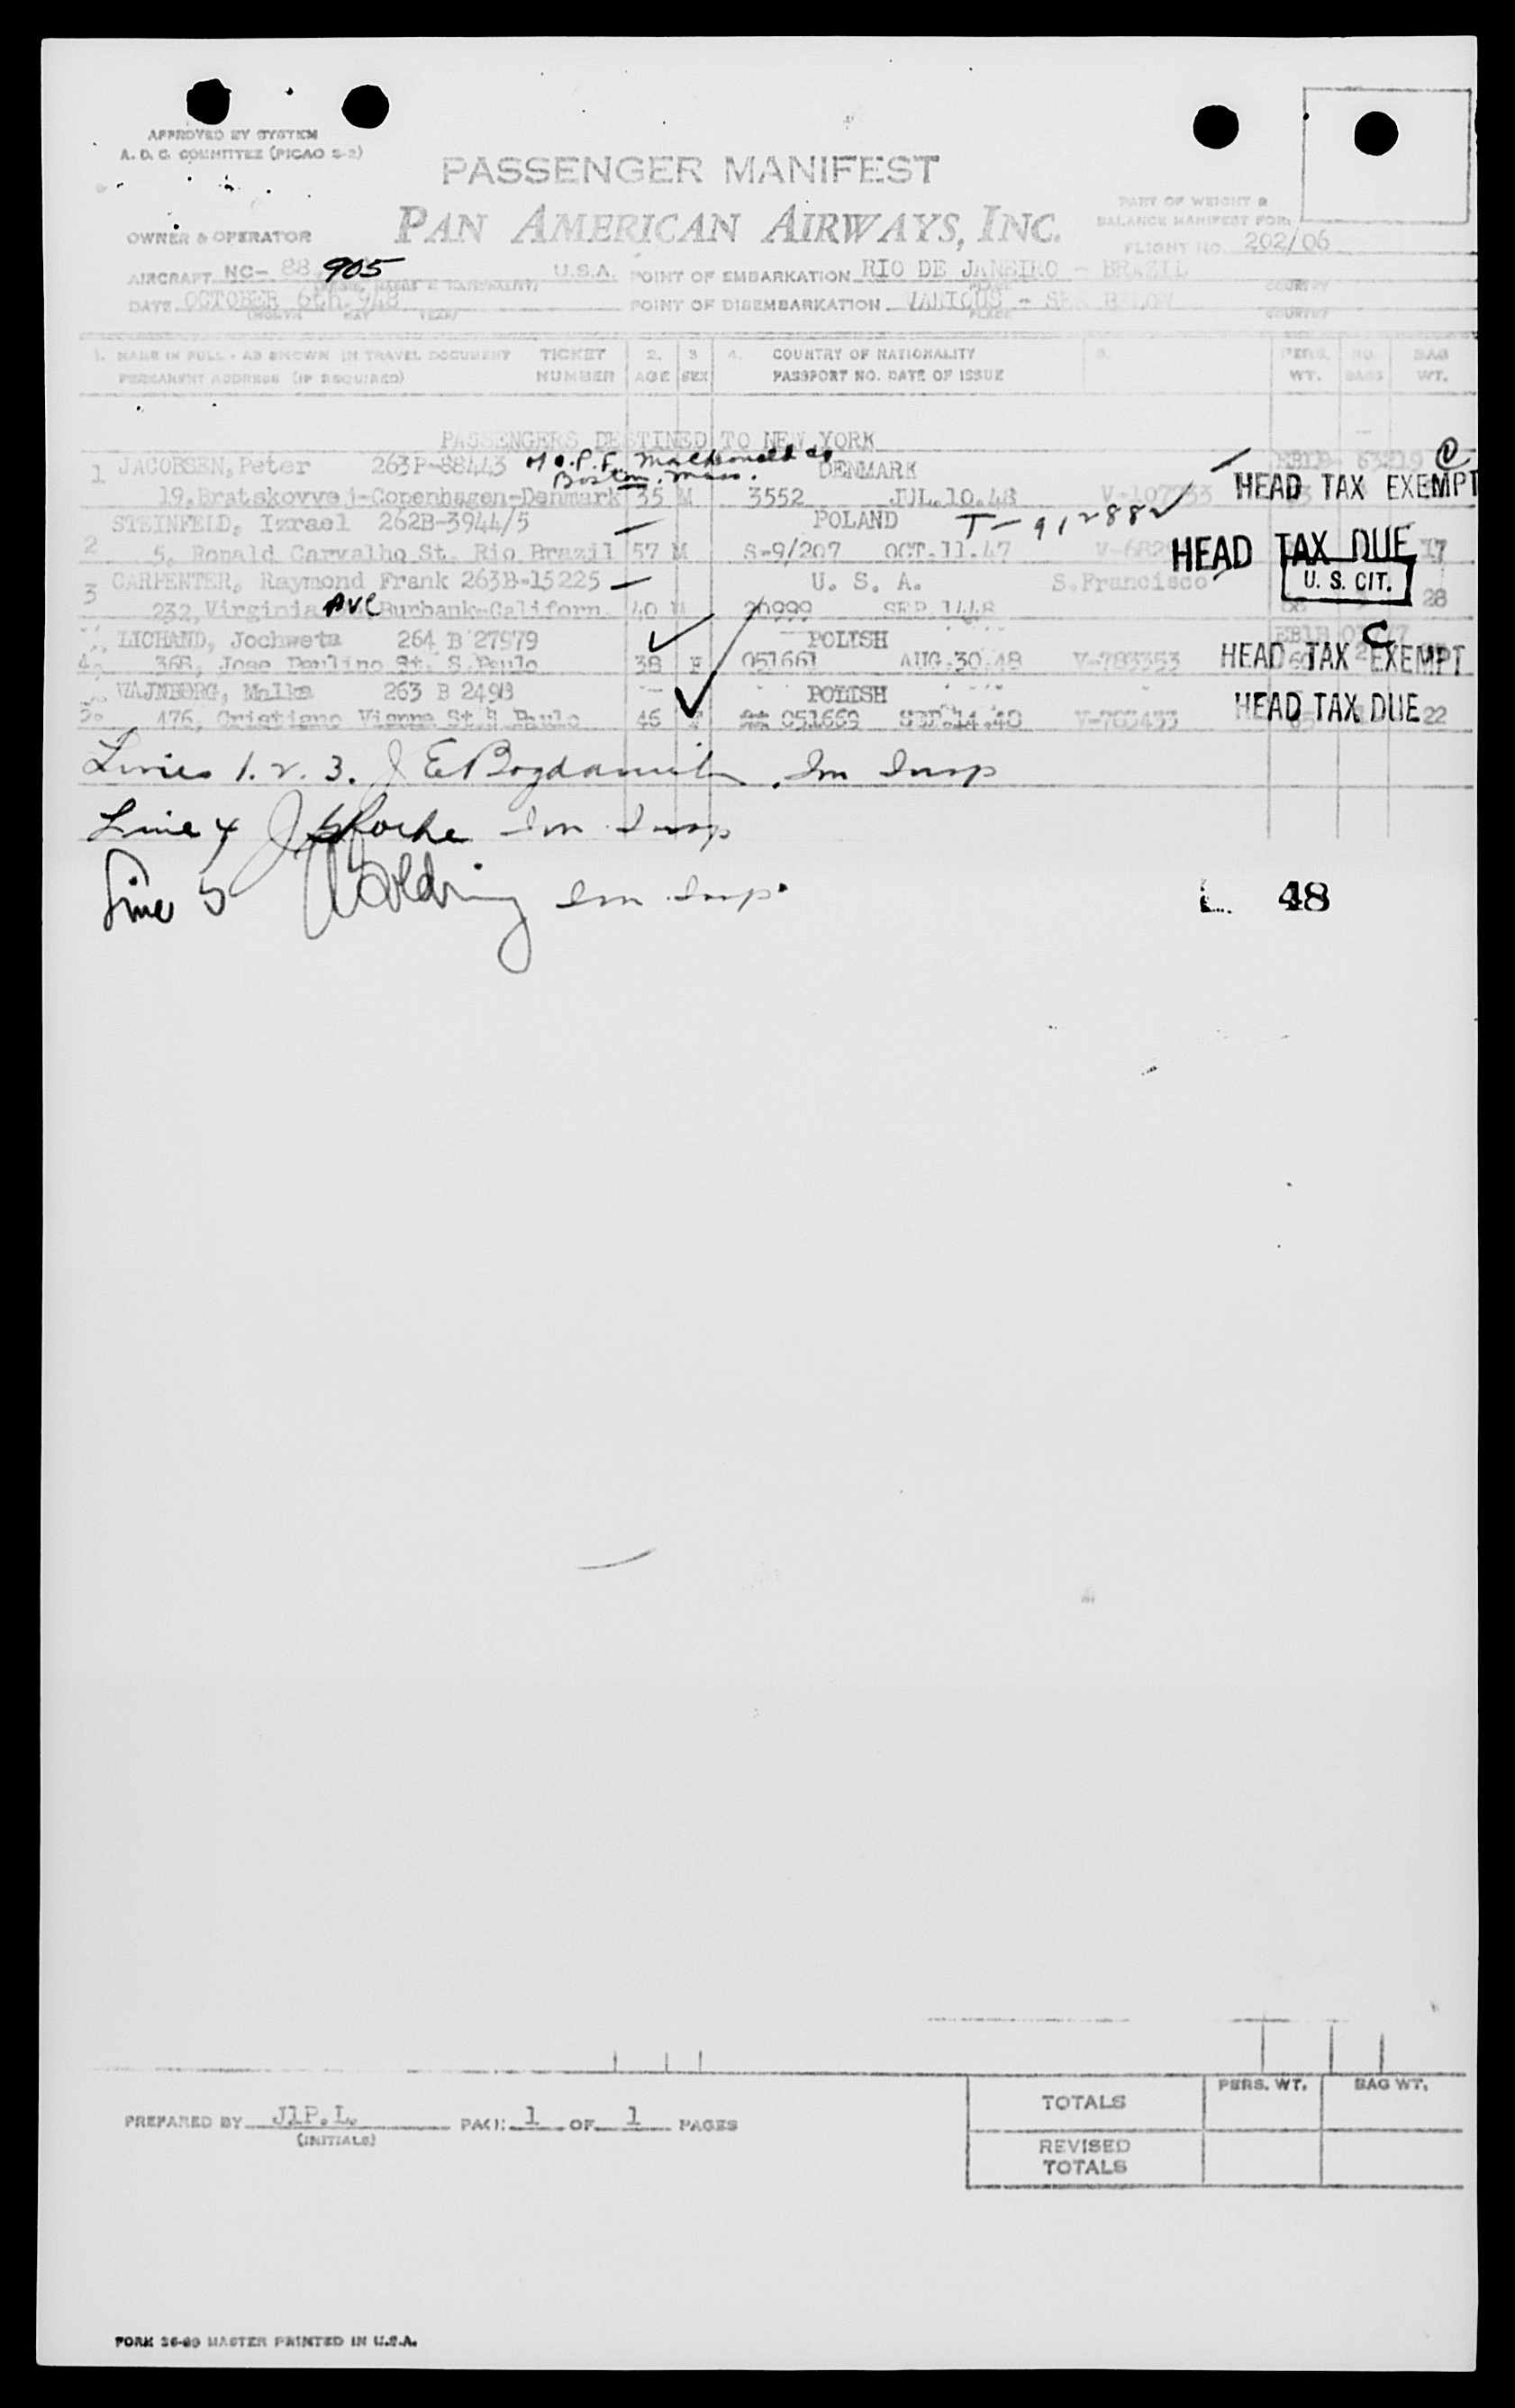 APPROVED BY SYSTEM
A. O. C. COMMITTEE (PICAO S-2)
PASSENGER MANIFEST
PAN AMERICAN AIRWAYS, INC.
PART OF WEIGHT &
BALANCE MANIFEST FOR:
FLIGHT NO. 202/06
OWNER & OPERATOR
AIRCRAFT NC- 88 905 U.S.A. POINT OF EMBARKATION RIO DE JANEIRO - BRAZIL
PLACE COUNTRY
DATE OCTOBER 6th. 948 POINT OF DISEMBARKATION VARIOUS - SEE BELOW
(MONTH DAY YEAR) PLACE COUNTRY
1. NAME IN FULL - AS SHOWN IN TRAVEL DOCUMENT TICKET 2. 3 4. COUNTRY OF NATIONALITY PERS. NO. BAG
PERMANENT ADDRESS (IF REQUIRED) NUMBER AGE SEX PASSPORT NO. DATE OF ISSUE WT. BAGS WT.
PASSENGERS DESTINED TO NEW YORK
1 JACOBSEN, Peter 263P-88443 DENMARK
Boston. Mass.
19,Bratskovvej-Copenhagen-Denmark 35 M 3552 JUL.10.48 V-107333 HEAD TAX EXEMPT
STEINFELD, Izrael 262B-3944/5 POLAND T-912882
2 5, Ronald Carvalho St. Rio Brazil 57 M S-9/207 OCT.11.47 HEAD TAX DUE 17
3 CARPENTER, Raymond Frank 263B-15225 U. S. A. S.Francisco U. S. CIT.
232, Virginia Ave Burbank-Californ. 40 M 20999 SEP. 1448 28
LICHAND, Jochweta 264 B 27979 POLISH C
4. 368, Jose Paulino St. S.Paulo 38 F 051661 AUG.30.48 V-783353 HEAD TAX EXEMPT
WAJNBORG, Malka 263 B 2498 POLISH
5. 476, Cristiano Vianna St S Paulo 46 F 051669 SEP.14.48 V-783433 HEAD TAX DUE 22
Lines 1. 2. 3. Im Insp
Line 4 J Roche Im Insp
Line 5 Im Insp.
48
TOTALS PERS. WT. BAG WT.
PREPARED BY J1P.L. PAGE 1 OF 1 PAGES
(INITIALS)
REVISED
TOTALS
FORM 36-80 MASTER PRINTED IN U.S.A.